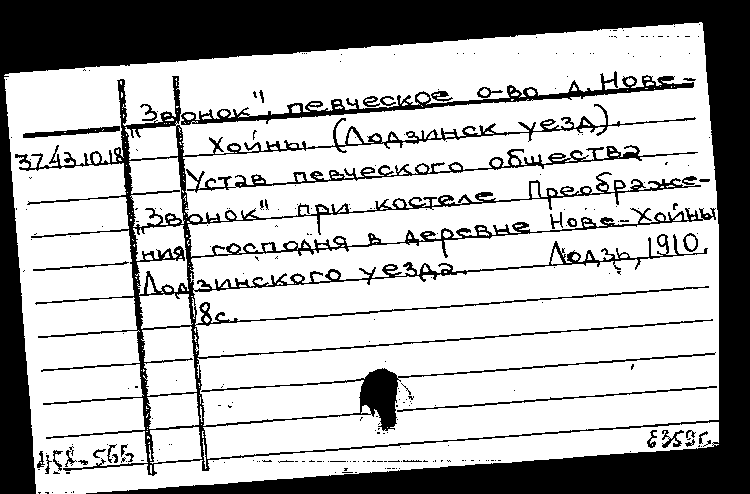 "Звонок", певческое о-во д. Нове-
Хойны (Лодзинск уезд).
37.43.10.18
Устав певческого общества
"Звонок" при костеле Преображе-
ния господня в деревне Нове-Хойны
Лодзинского уезда. Лодзь, 1910.
8с.
458-566
6359г.